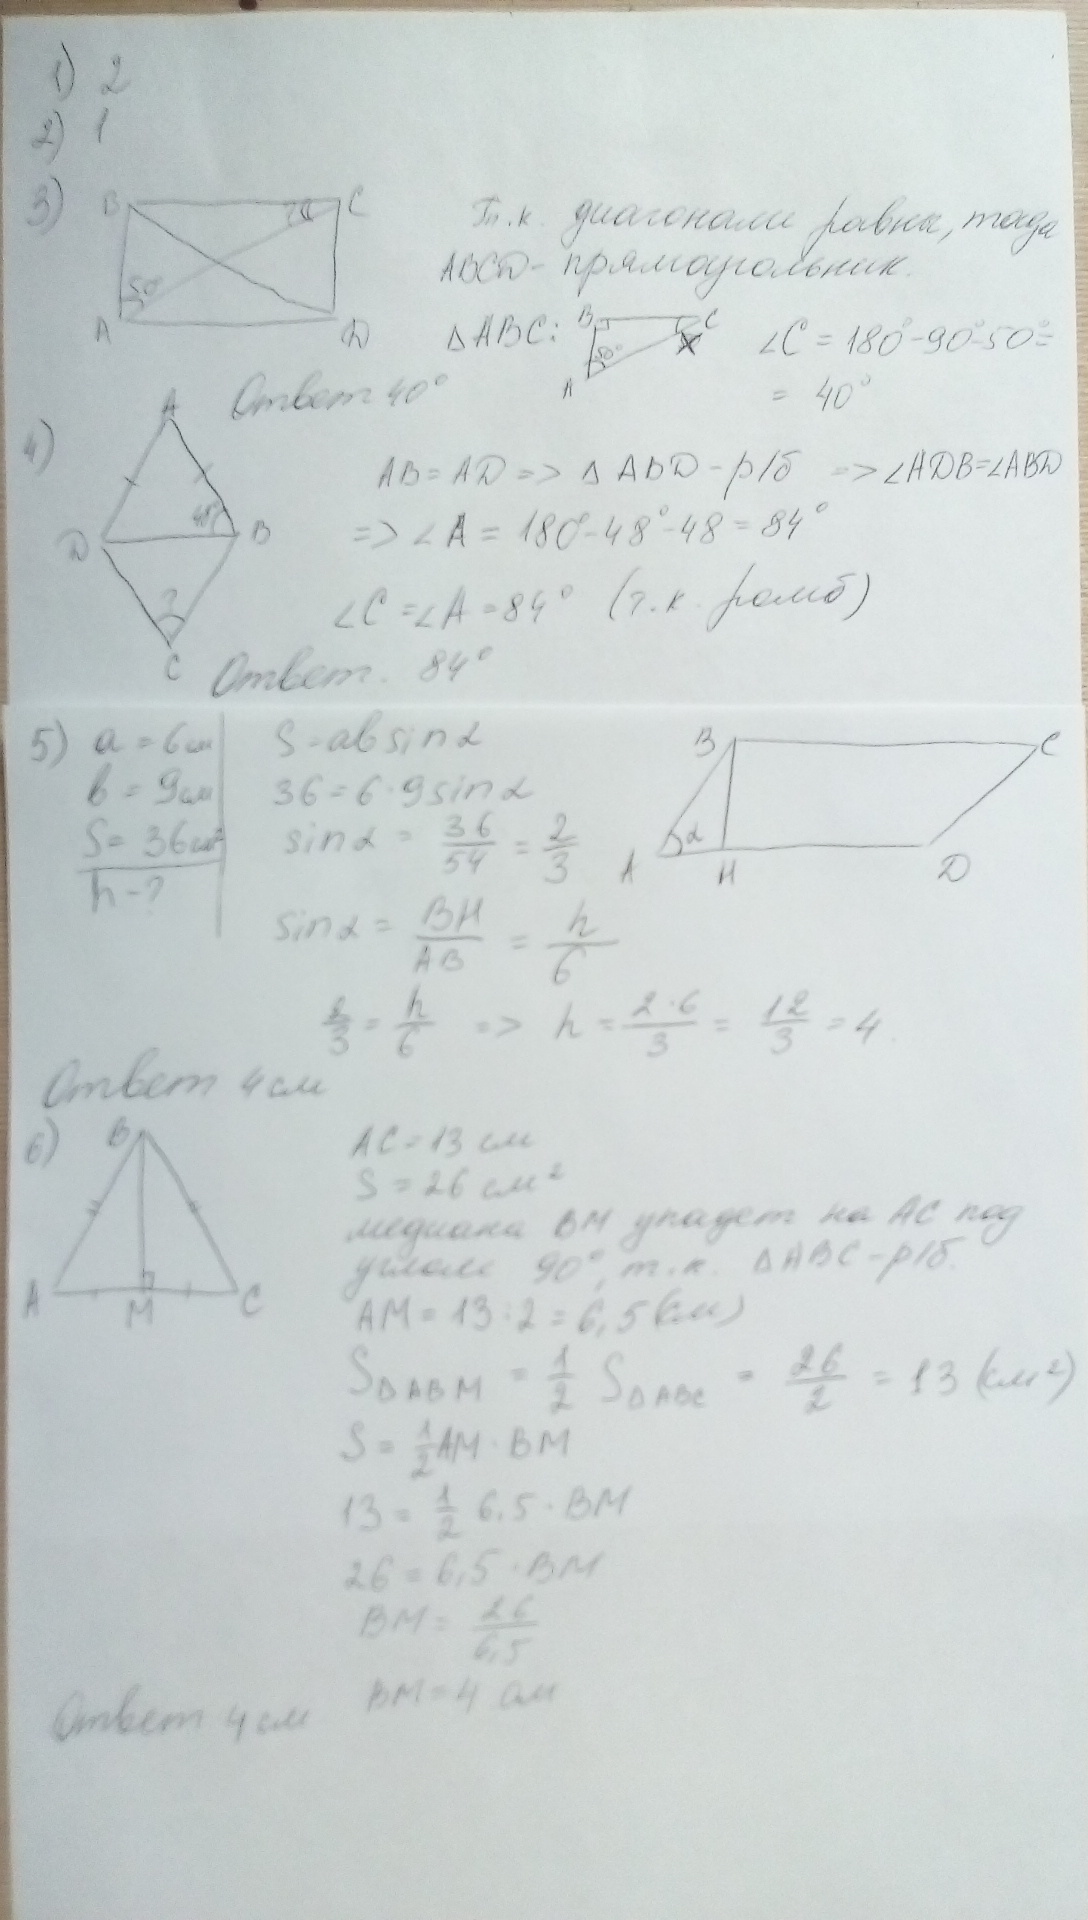 1) 2
2) 1
3) B C 50° A D
Т.к. диагонали равны, тогда
ABCD - прямоугольник.
△ABC: B C 50° A ∠C = 180°-90°-50°=
= 40°
Ответ 40°
4) A 48° D B ? C
AB = AD => △ ABD - р/б => ∠ADB=∠ABD
=> ∠A = 180°-48°-48 = 84°
∠C = ∠A = 84° (т.к. ромб)
Ответ. 84°
5) a = 6см
b = 9см
S = 36см²
h - ?
S = ab sinα
36 = 6·9 sinα
sinα = 36/54 = 2/3
sinα = BH/AB = h/6
2/3 = h/6 => h = 2·6/3 = 12/3 = 4
B C A α H D
Ответ 4 см
6) B A M C
AC = 13 см
S = 26 см²
медиана BM упадет на AC под
углом 90°, т.к. △ABC - р/б.
AM = 13:2 = 6,5(см)
S△ABM = 1/2 S△ABC = 26/2 = 13 (см²)
S = 1/2 AM · BM
13 = 1/2 6,5 · BM
26 = 6,5 · BM
BM = 26/6,5
BM = 4 см
Ответ 4 см